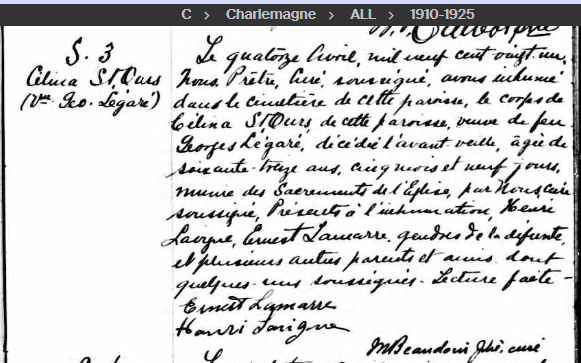 C > Charlemagne > ALL > 1910-1925
S. 3
Célina St Ours
(Vve Geo. Légaré)
Le quatorze Avril, mil neuf cent vingt un,
Nous, Prêtre, Curé, soussigné, avons inhumé
dans le cimetière de cette paroisse, le corps de
Célina St Ours, de cette paroisse, veuve de feu
Georges Légaré, décédée l'avant veille, âgée de
soixante-treize ans, cinq mois et neuf jours,
munie des Sacrements de l'Eglise, par Nous, curé
soussigné, Présents à l'inhumation, Henri
Lavigne, Ernest Lamarre, gendres de la défunte,
et plusieurs autres parents et amis dont
quelques-uns soussignés. Lecture faite -
Ernest Lamarre
Henri Lavigne
Beaudoin Ptre, curé